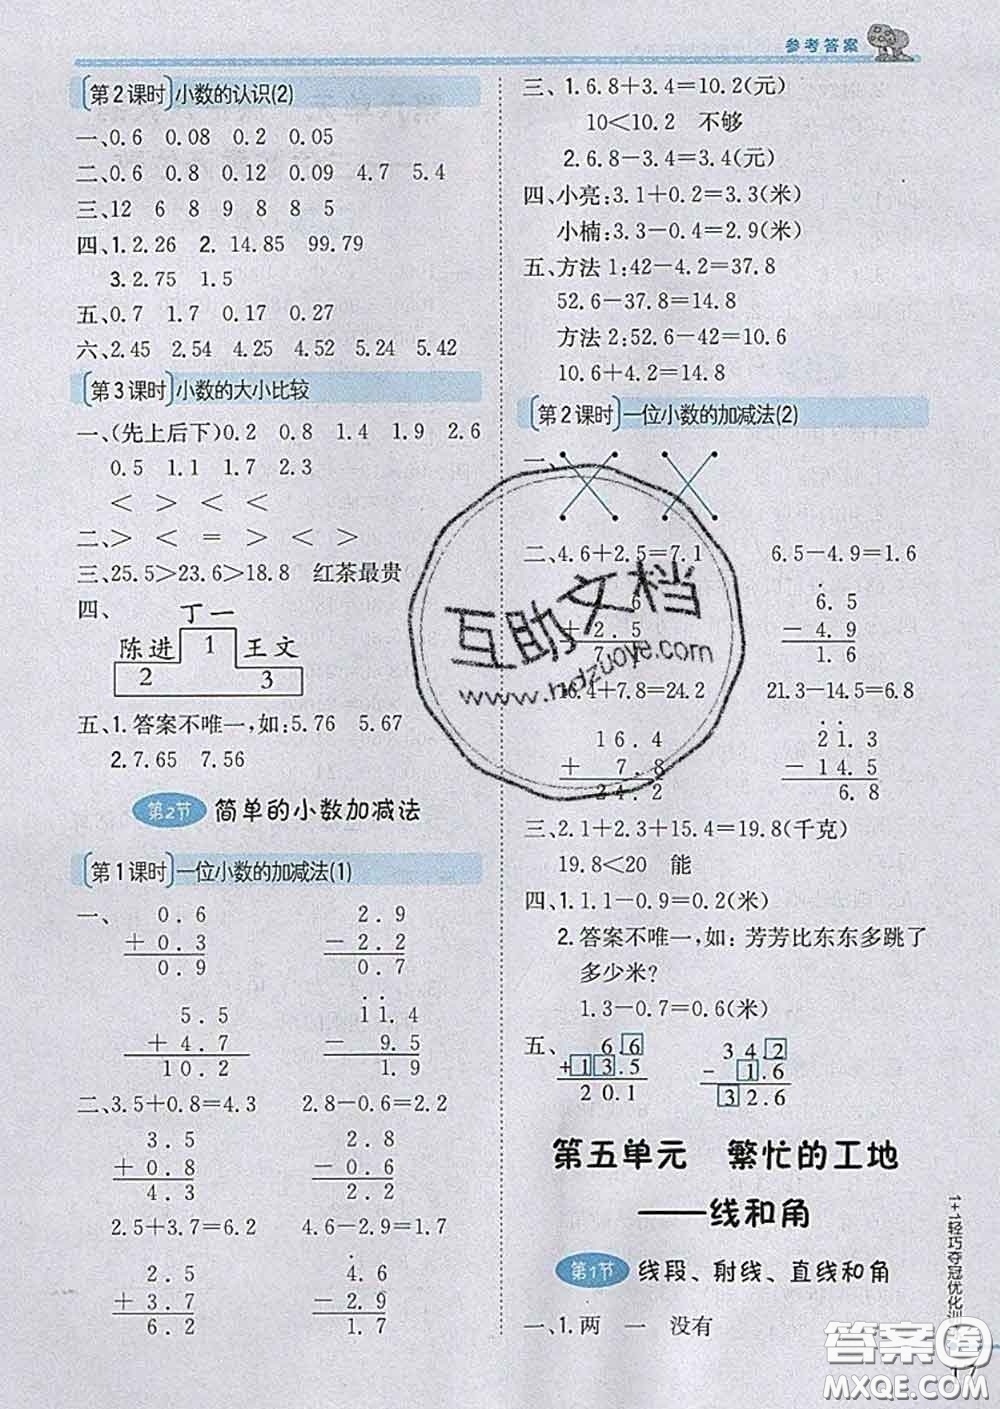 参考答案
第2课时 小数的认识(2)
一、0.6 0.08 0.2 0.05
二、0.6 0.8 0.12 0.09 4.7 5.4
三、12 6 8 9 8 8 5
四、1.2.26 2. 14.85 99.79
3.2.75 1.5
五、0.7 1.7 0.17 0.27
六、2.45 2.54 4.25 4.52 5.24 5.42
第3课时 小数的大小比较
一、(先上后下)0.2 0.8 1.4 1.9 2.6
0.5 1.1 1.7 2.3
< > < <
二、> < = > < >
三、25.5>23.6>18.8 红茶最贵
四、
丁一
陈进 1 王文
2 3
五、1.答案不唯一,如:5.76 5.67
2.7.65 7.56
第2节 简单的小数加减法
第1课时 一位小数的加减法(1)
一、 0.6 2.9
+0.3 -2.2
0.9 0.7
5.5 11.4
+4.7 -9.5
10.2 1.9
二、3.5+0.8=4.3 2.8-0.6=2.2
3.5 2.8
+0.8 -0.6
4.3 2.2
2.5+3.7=6.2 4.6-2.9=1.7
2.5 4.6
+3.7 -2.9
6.2 1.7
三、1.6.8+3.4=10.2(元)
10<10.2 不够
2.6.8-3.4=3.4(元)
四、小亮:3.1+0.2=3.3(米)
小楠:3.3-0.4=2.9(米)
五、方法1:42-4.2=37.8
52.6-37.8=14.8
方法2:52.6-42=10.6
10.6+4.2=14.8
第2课时 一位小数的加减法(2)
一、
二、4.6+2.5=7.1 6.5-4.9=1.6
6 6.5
+2.5 -4.9
7. 1.6
16.4+7.8=24.2 21.3-14.5=6.8
16.4 21.3
+7.8 -14.5
24.2 6.8
三、2.1+2.3+15.4=19.8(千克)
19.8<20 能
四、1.1.1-0.9=0.2(米)
2.答案不唯一,如:芳芳比东东多跳了
多少米?
1.3-0.7=0.6(米)
五、 6.6 34.2
+13.5 -1.6
20.1 32.6
第五单元 繁忙的工地
——线和角
第1节 线段、射线、直线和角
一、1.两 一 没有
1+1轻巧夺冠优化训
17
互助文档
www.hdzuoye.com
答案圈
MXQE.COM